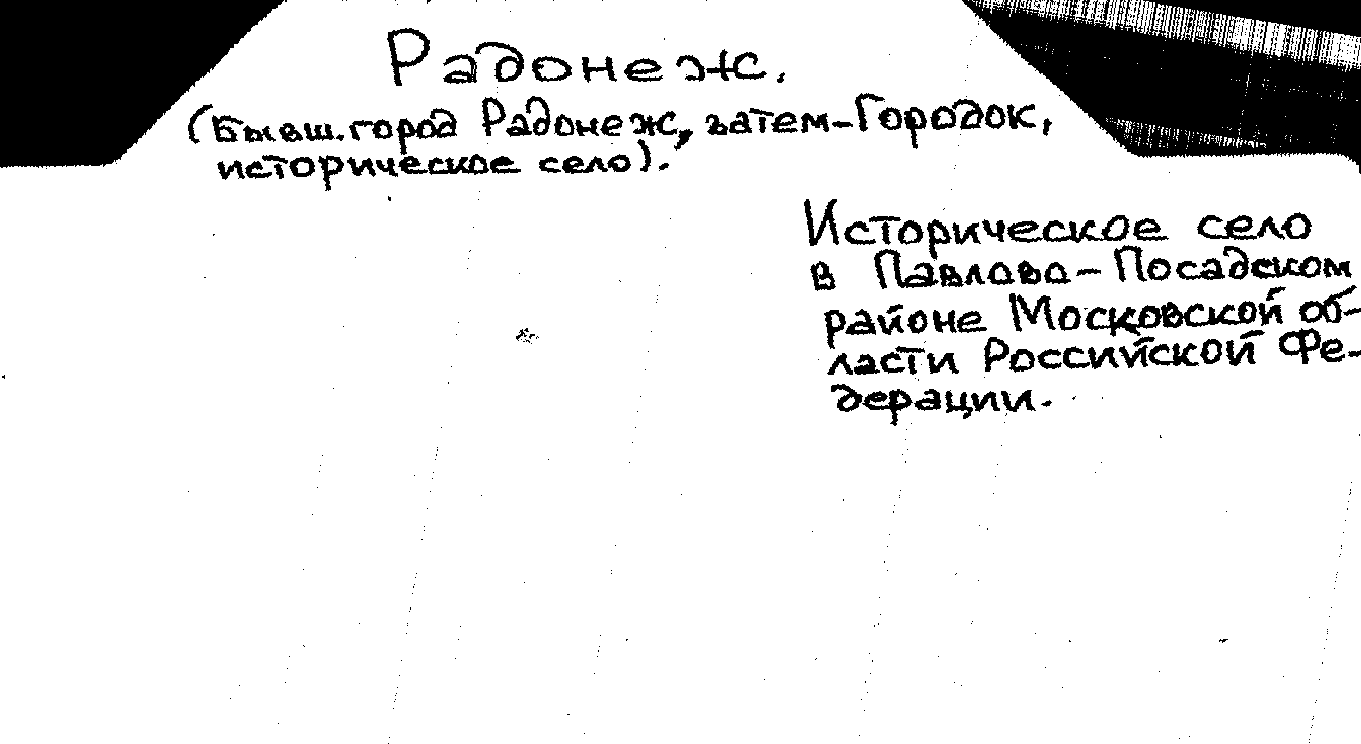 Радонеж.
(Бывш. город Радонеж, затем-Городок,
историческое село).
Историческое село
в Павлово-Посадском
районе Московской об-
ласти Российской Фе-
дерации.